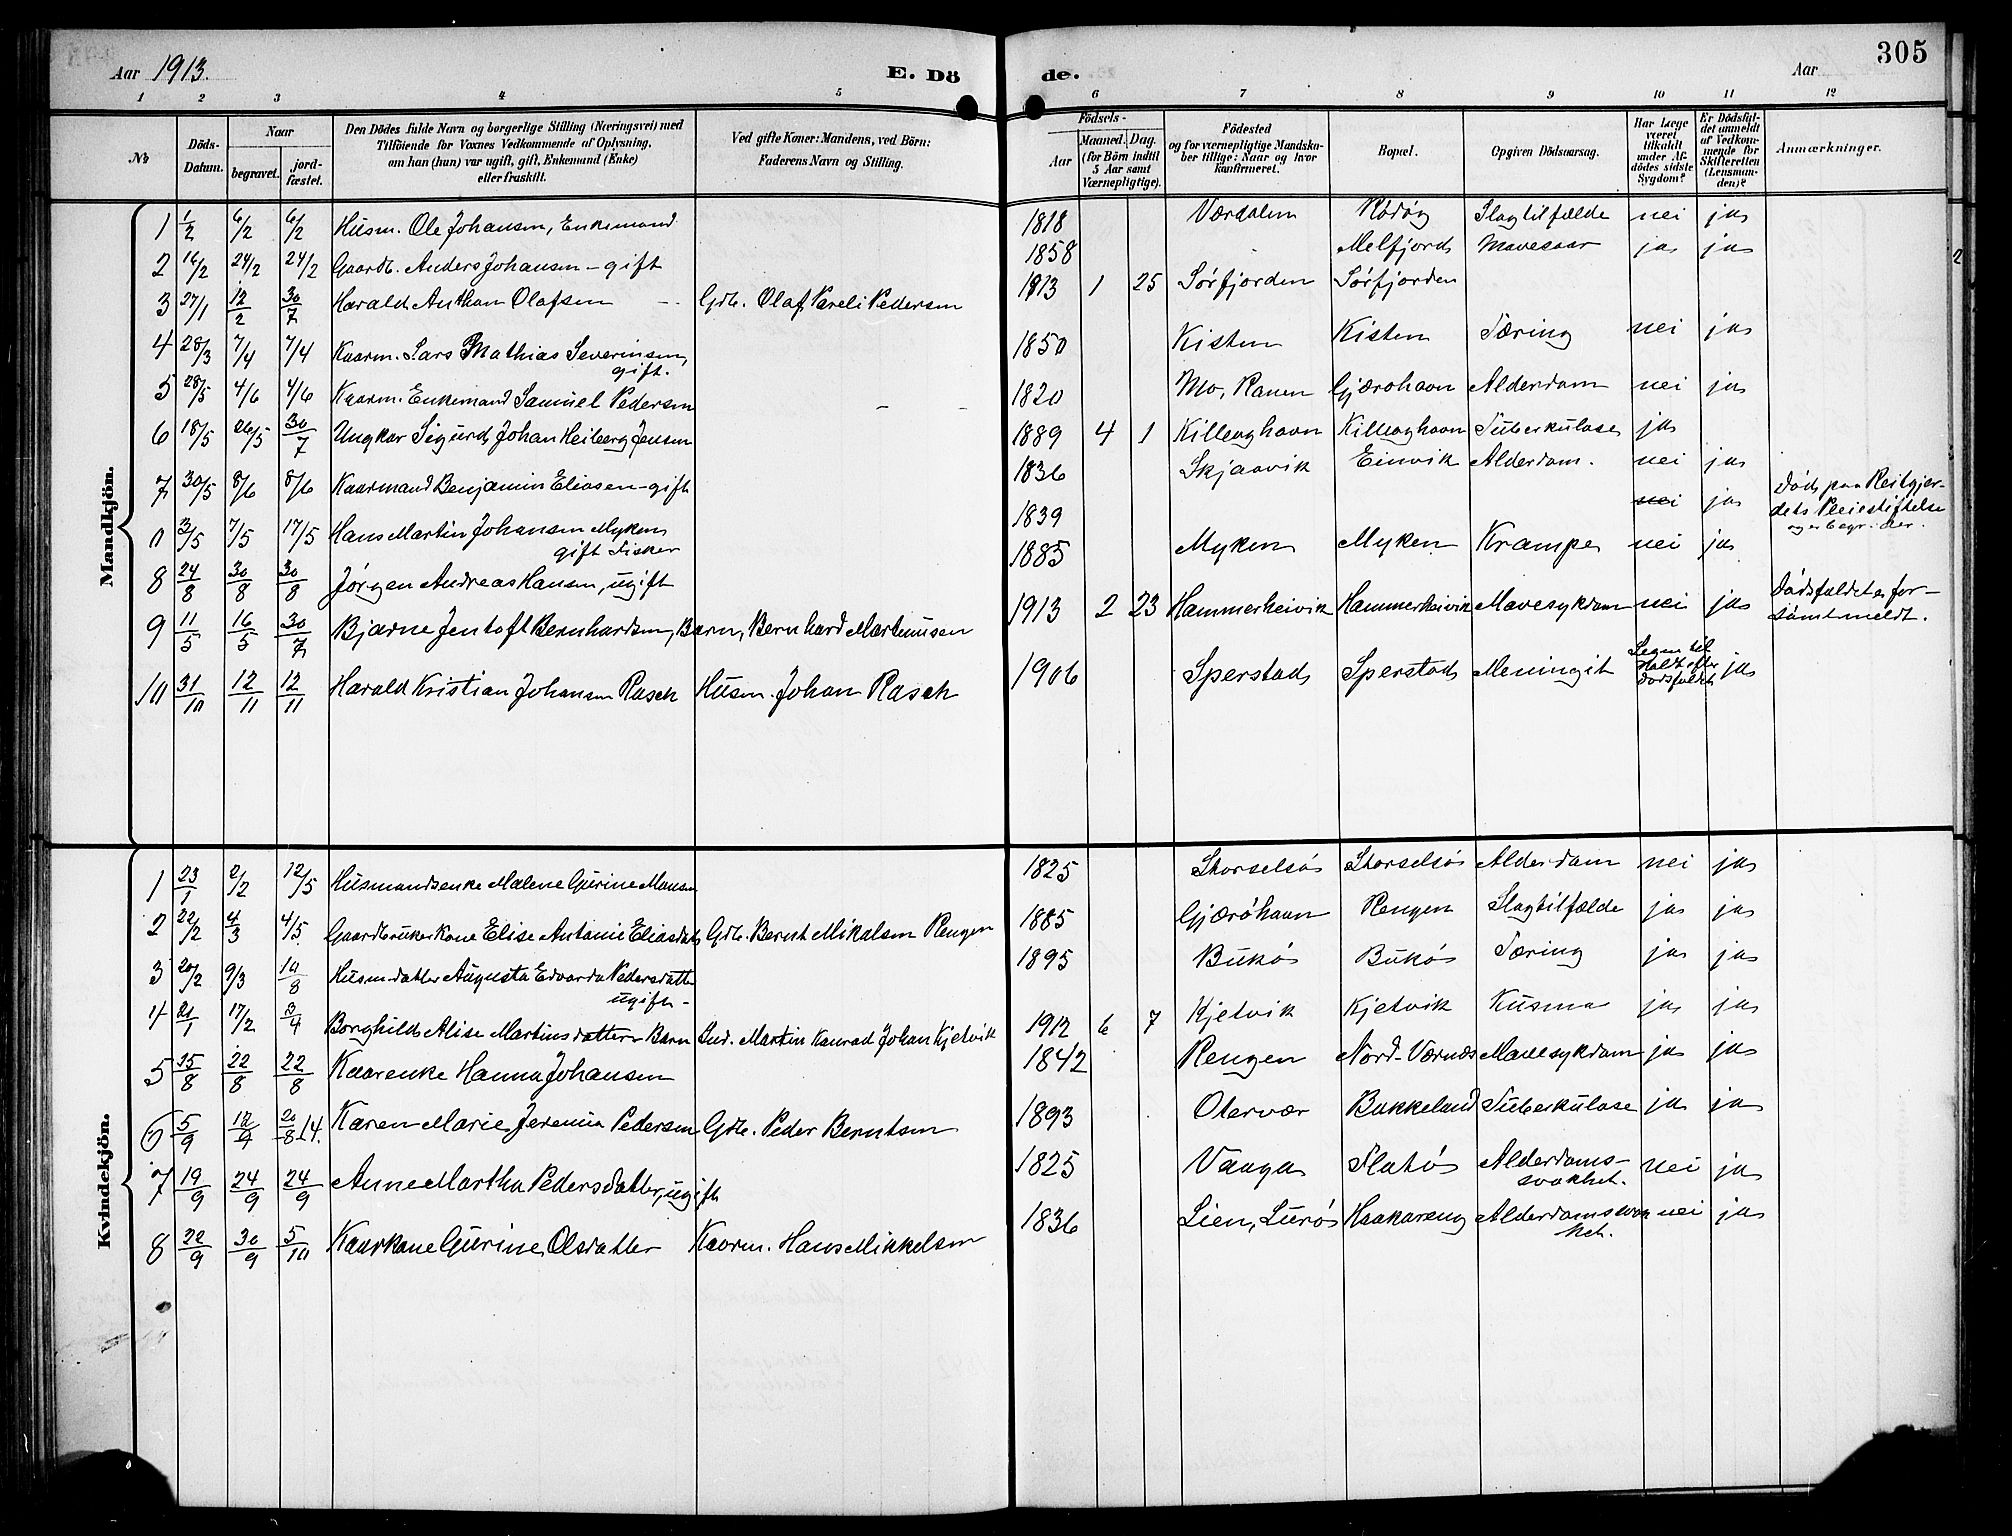 Aar 1913. E. Dö de. Aar 305
1 2 3 4 5 6 7 8 9 10 11 12
No
Döds-Datum.
Naar
begravet.
jord-fæstet.
Den Dödes fulde Navn og borgerlige Stilling (Næringsvei) med
Tilföiende for Voxnes Vedkommende af Oplysning,
om han (hun) var ugift, gift, Enkemand (Enke)
eller fraskilt.
Ved gifte Koner: Mandens, ved Börn:
Faderens Navn og Stilling.
Födsels-
Aar
Maaned. Dag.
(for Börn indtil
5 Aar samt
Værnepligtige).
Födested
og for værnepligtige Mandska-
ber tillige: Naar og hvor
konfirmeret.
Bopæl.
Opgiven Dödsaarsag.
Har Læge
været
tilkaldt
under Af-
dödes sidste
Sygdom?
Er Dödsfal-
det anmeldt
af Vedkom-
mende for
Skifteretten
(Lensman-
den)?
Anmærkninger.
Mandkjön.
1 1/2 6/2 6/2 Husm. Ole Johansen, Enkemand 1818 Værdalen Rødøy Slagtilfælde nei ja
2 16/2 24/2 24/2 Gaardb. Anders Johansen - gift 1858 Melfjord Mavesaar ja ja
3 27/1 12/2 30/7 Harald Anthon Olafsen Gdb. Olaf Pareli Pedersen 1913 1 25 Sørfjorden Sørfjorden
4 28/3 7/4 7/4 Kaarm. Lars Mathias Severinsen, gift. 1850 Kisten Kisten Tæring nei ja
5 28/5 4/6 4/6 Kaarm. Enkemand Samuel Pedersen 1820 Mo, Ranen Gjærøhavn Alderdom nei ja
6 18/5 26/5 30/7 Ungkar Sigurd Johan Heiberg Jensen 1889 4 1 Killeoghavn Killeoghavn Tuberkulose ja
7 30/5 8/6 8/6 Kaarmand Benjamin Eliasen - gift 1836 Skjaavik Einvik Alderdom. nei ja
0 3/5 7/5 17/5 Hans Martin Johansen Myken gift Fisker 1839 nei ja Død paa Reitgjer-
dets Pleiestiftelse
og er begr. der.
8 24/8 30/8 30/8 Jørgen Andreas Hansen, ugift 1885 Myken Myken Krampe nei ja
9 11/5 16/5 30/7 Bjarne Jentoft Bernhardsen, Barn, Bernhard Marthinusen 1913 2 23 Hammerheivik Hammerheivik Mavesykdom nei ja Dødsfaldet er for-
sömt meldt.
10 31/10 12/11 12/11 Harald Kristian Johansen Rasch Husm. Johan Rasch 1906 Sperstad Sperstad Meningit Legen til Holdt efter dødsfaldet ja
Kvindekjön.
1 23/1 2/2 12/5 Husmandsenke Malene Gurine Monsen 1825 Storselsø Storselsø Alderdom nei ja
2 22/2 4/3 4/5 Gaardbrukerkone Elise Antonie Eliasdatter Gdb. Bernt Mikalsen Rengen 1885 Gjærøhavn Rengen Slagtilfælde ja ja
3 20/2 9/3 10/8 Husm.datter Augusta Edvarda Pedersdatter ugift - 1895 Bukø Bukø Tæring ja ja
4 21/1 17/2 3/4 Borghild Alise Martinsdatter Barn Ind. Martin Konrad Johan Kjetvik 1912 6 7 Kjetvik Kjetvik Kusma ja ja
5 15/8 22/8 22/8 Kaarenke Hanna Johansen 1842 Rengen Nord-Værnes Mavesykdom ja ja
6 5/9 12/9 20/8 14. Karen Marie Jeremia Pedersen Gdb. Peder Berntsen 1893 Otervær Bukkeland Tuberkulose ja ja
7 19/9 24/9 24/9 Anne Martha Pedersdatter, ugift 1825 Vaaga Flatø Alderdoms-
svakhet. nei ja
8 22/9 30/9 5/10 Kaarkone Gurine Olsdatter Kaarm. Hans Mikkelsen 1836 Lien, Lurø Haakareng Alderdomssvak
het. nei ja